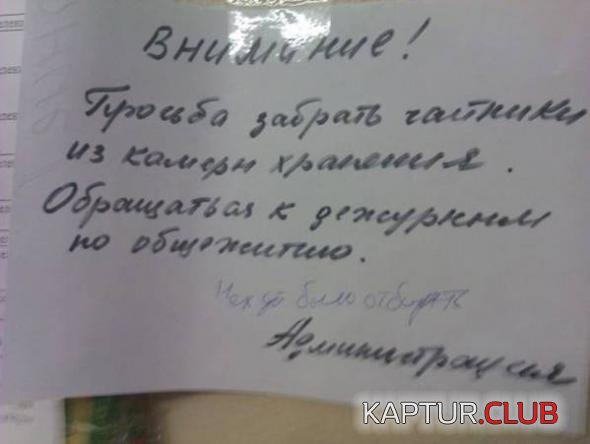 Внимание!
Просьба забрать чайники
из камеры хранения.
Обращаться к дежурным
по общежитию.
было отбирать
Администрация
KAPTUR.CLUB